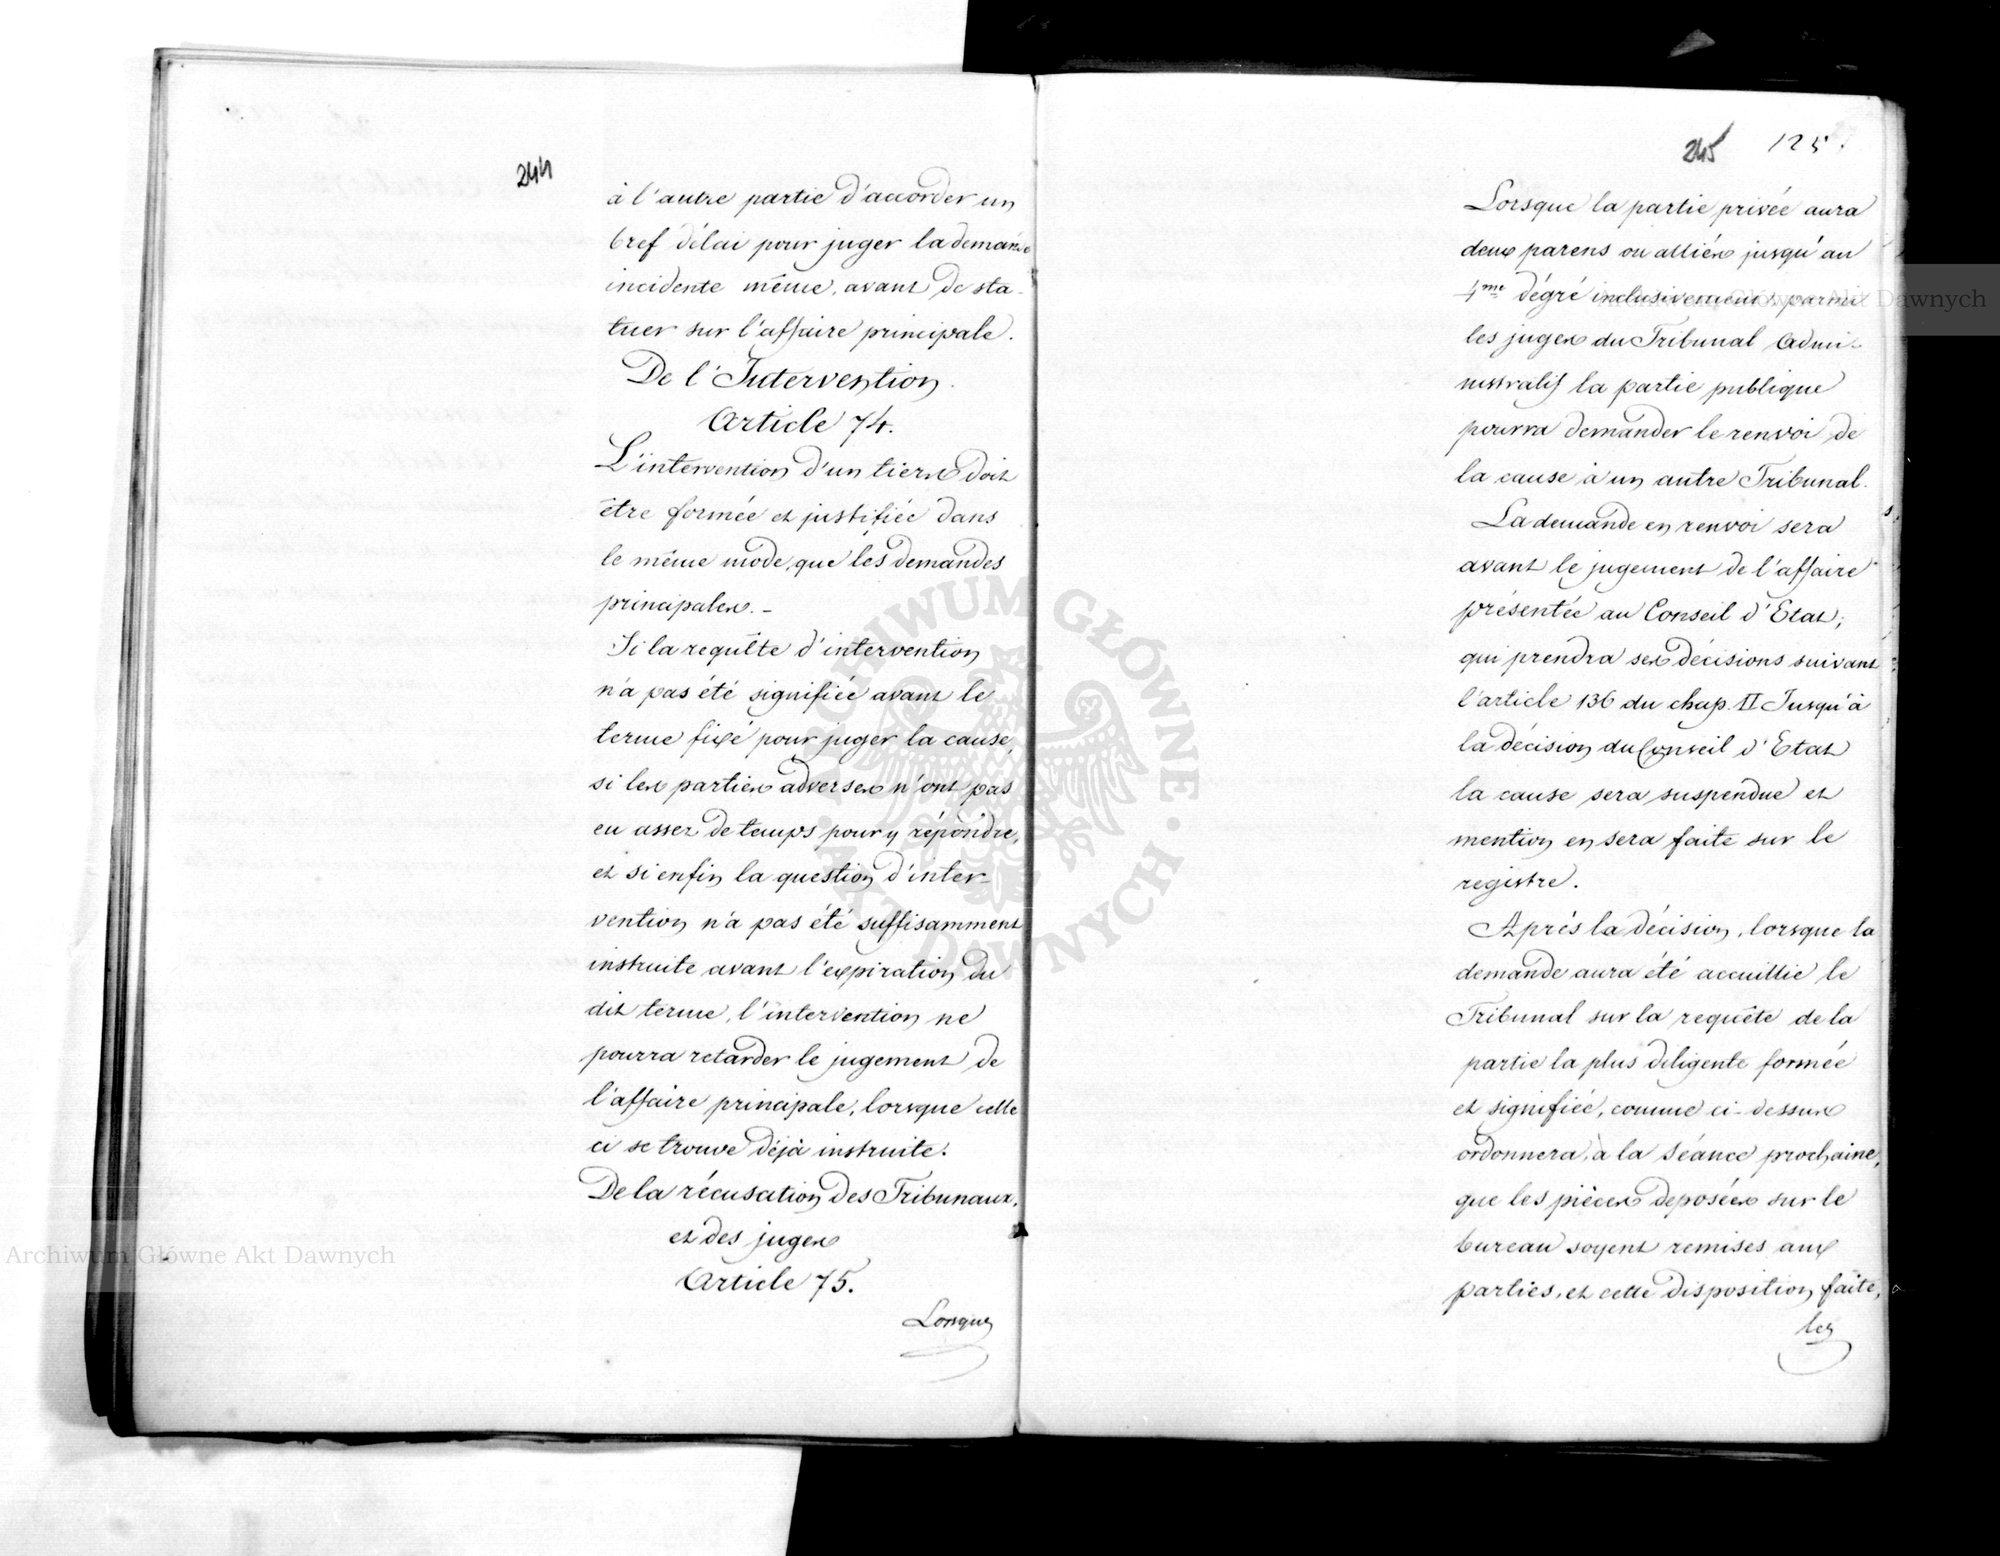 244
à l'autre partie d'accorder un
bref délai pour juger la demande
incidente même, avant de sta-
tuer sur l'affaire principale.
De l'Intervention.
Article 74.
L'intervention d'un tiers doit
être formée et justifiée dans
le même mode, que les demandes
principales. -
Si la requête d'intervention
n'a pas été signifiée avant le
terme fixé pour juger la cause,
si les parties adverses n'ont pas
eu assez de temps pour y répondre,
et si enfin la question d'inter-
vention n'a pas été suffisamment
instruite avant l'expiration du
dit terme, l'intervention ne
pourra retarder le jugement de
l'affaire principale, lorsque celle
ci se trouve déjà instruite.
De la récusation des Tribunaux,
et des juges
Article 75.
Lorsque
245 125.
Lorsque la partie privée aura
deux parens ou alliés jusqu'au
4me dégré inclusivement, parmi
les juges du Tribunal Admi-
nistratif la partie publique
pourra demander le renvoi de
la cause à un autre Tribunal.
La demande en renvoi sera
avant le jugement de l'affaire
présentée au Conseil d'Etat,
qui prendra ses décisions suivant
l'article 136 du chap. II Jusqu'à
la décision du Conseil d'Etat
la cause sera suspendue et
mention en sera faite sur le
registre.
Après la décision, lorsque la
demande aura été accuillie le
Tribunal sur la requête de la
partie la plus diligente formée
et signifiée, comme ci-dessus
ordonnera, à la séance prochaine,
que les pièces deposées sur le
bureau soyent remises aux
parties, et cette disposition faite,
les
Archiwum Główne Akt Dawnych
Archiwum Główne Akt Dawnych
ARCHIWUM GŁÓWNE · AKT DAWNYCH ·